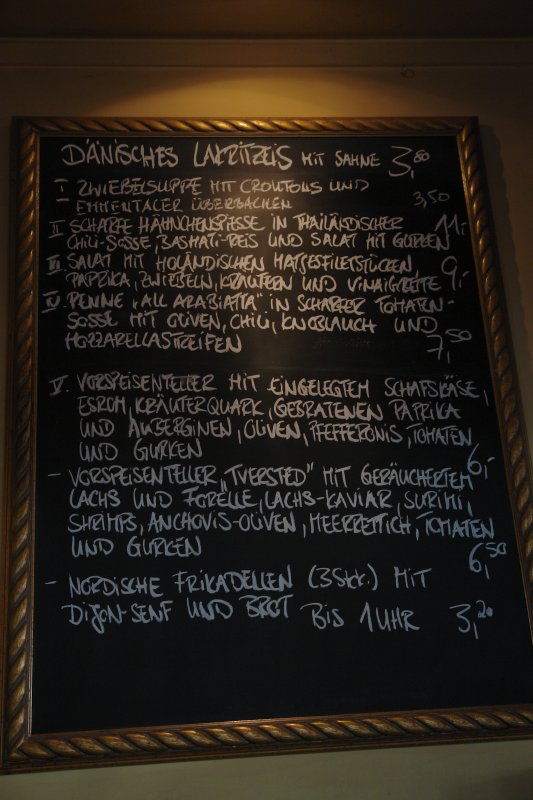 DÄNISCHES LAKRITZEIS MIT SAHNE 3,80
I ZWIEBELSUPPE MIT CROUTONS UND
EMMENTALER ÜBERBACKEN 3,50
II SCHARFE HÄHNCHENSPIESSE IN THAILÄNDISCHER
CHILI-SOSSE, BASMATI-REIS UND SALAT MIT GURKEN 11,-
III SALAT MIT HOLÄNDISCHEN MATJESFILETSTÜCKEN,
PAPRIKA, ZWIEBELN, KRÄUTERN UND VINAIGRETTE 9,-
IV PENNE „ALL ARABIATTA" IN SCHARFER TOMATEN-
SOSSE MIT OLIVEN, CHILI, KNOBLAUCH UND
MOZZARELLASTREIFEN 7,50
V. VORSPEISENTELLER MIT EINGELEGTEM SCHAFSKÄSE,
ESROM, KRÄUTERQUARK, GEBRATENEN PAPRIKA
UND AUBERGINEN, OLIVEN, PFEFFERONIS, TOMATEN
UND GURKEN 6,-
- VORSPEISENTELLER „TVERSTED" MIT GERÄUCHERTEM
LACHS UND FORELLE, LACHS-KAVIAR, SURIMI,
SHRIMPS, ANCHOVIS-OLIVEN, MEERRETTICH, TOMATEN
UND GURKEN 6,50
- NORDISCHE FRIKADELLEN (3 Stk.) MIT
DIJON-SENF UND BROT BIS 1 UHR 3,20